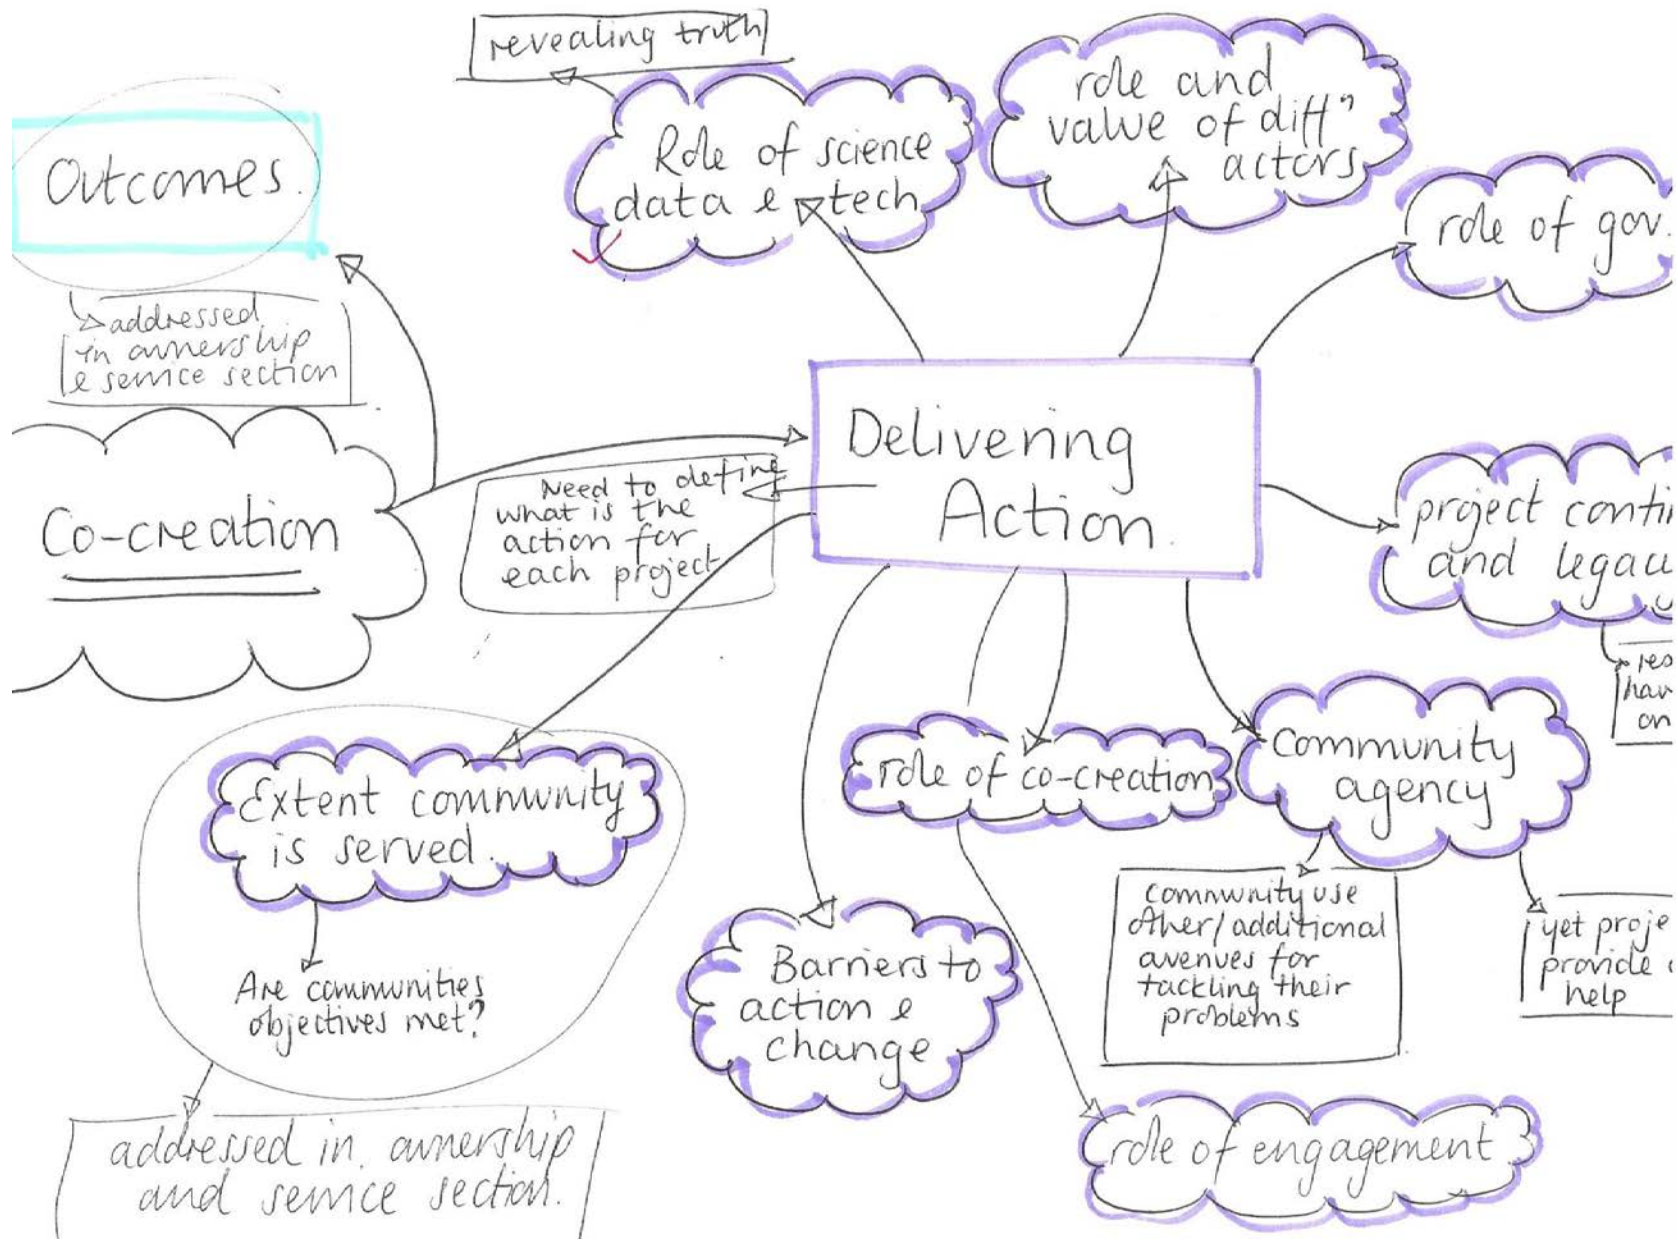 revealing truth
Role of science
data & tech
role and
value of diff"
actors
role of gov.
Outcomes.
addressed
in ownership
& service section
Co-creation
Need to define
what is the
action for
each project
Delivering
Action.
project contin
and legacy
res
hav
on
Extent community
is served.
Are communities
objectives met?
addressed in ownership
and service section.
role of co-creation
Community
agency
community use
other/additional
avenues for
tackling their
problems
yet proje
provide
help
Barriers to
action &
change
role of engagement